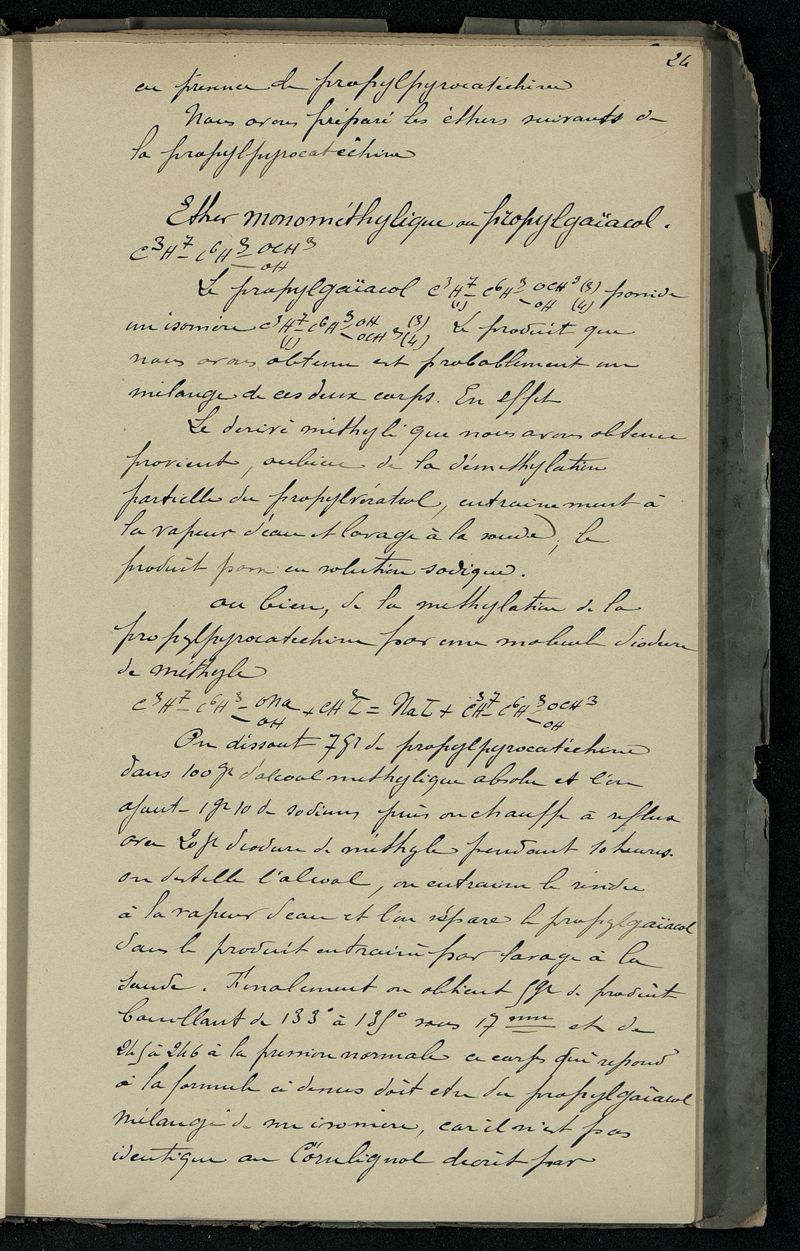 24
en présence de propylpyrocatéchine
Nous avons préparé les éthers suivants de
la propylpyrocatéchine
Ether monométhylique ou propylgaïacol.
C³H⁷ - C⁶H³ - OCH³
- OH
Le propylgaïacol C³H⁷ - C⁶H³ - OCH³ (3) possède
(1) - OH (4)
un isomère C³H⁷ - C⁶H³ - OH (3) Le produit que
(1) - OCH³ (4)
nous avons obtenu est probablement un
mélange de ces deux corps. En effet
Le derivé méthylé que nous avons obtenu
provient, oubien de la déméthylation
partielle du propylvératrol, entrainement à
la vapeur d'eau et lavage à la soude, le
produit passe en solution sodique.
ou bien, de la methylation de la
propylpyrocatechine par une molecule d'iodure
de méthyle
C³H⁷ - C⁶H³ - ONa + CH³I = NaI + C³H⁷ - C⁶H³ - OCH³
- OH - OH
On dissout 7gr de propylpyrocatéchine
dans 100gr d'alcool methylique absolu et l'on
ajoute 1gr10 de sodium puis on chauffe à reflux
avec 20gr d'iodure de méthyle pendant 10 heures.
on distille l'alcool, on entraine le résidu
à la vapeur d'eau et l'on sépare le propylgaïacol
dans le produit entrainé par lavage à la
soude. Finalement on obtient 5gr de produit
bouillant de 133° à 135° sous 17 mm et de
245 à 246 à la pression normale ce corps qui repond
à la formule ci dessus doit etre du propylgaïacol
mélangé de son isomère, car il n'est pas
identique au Cörulignol décrit par